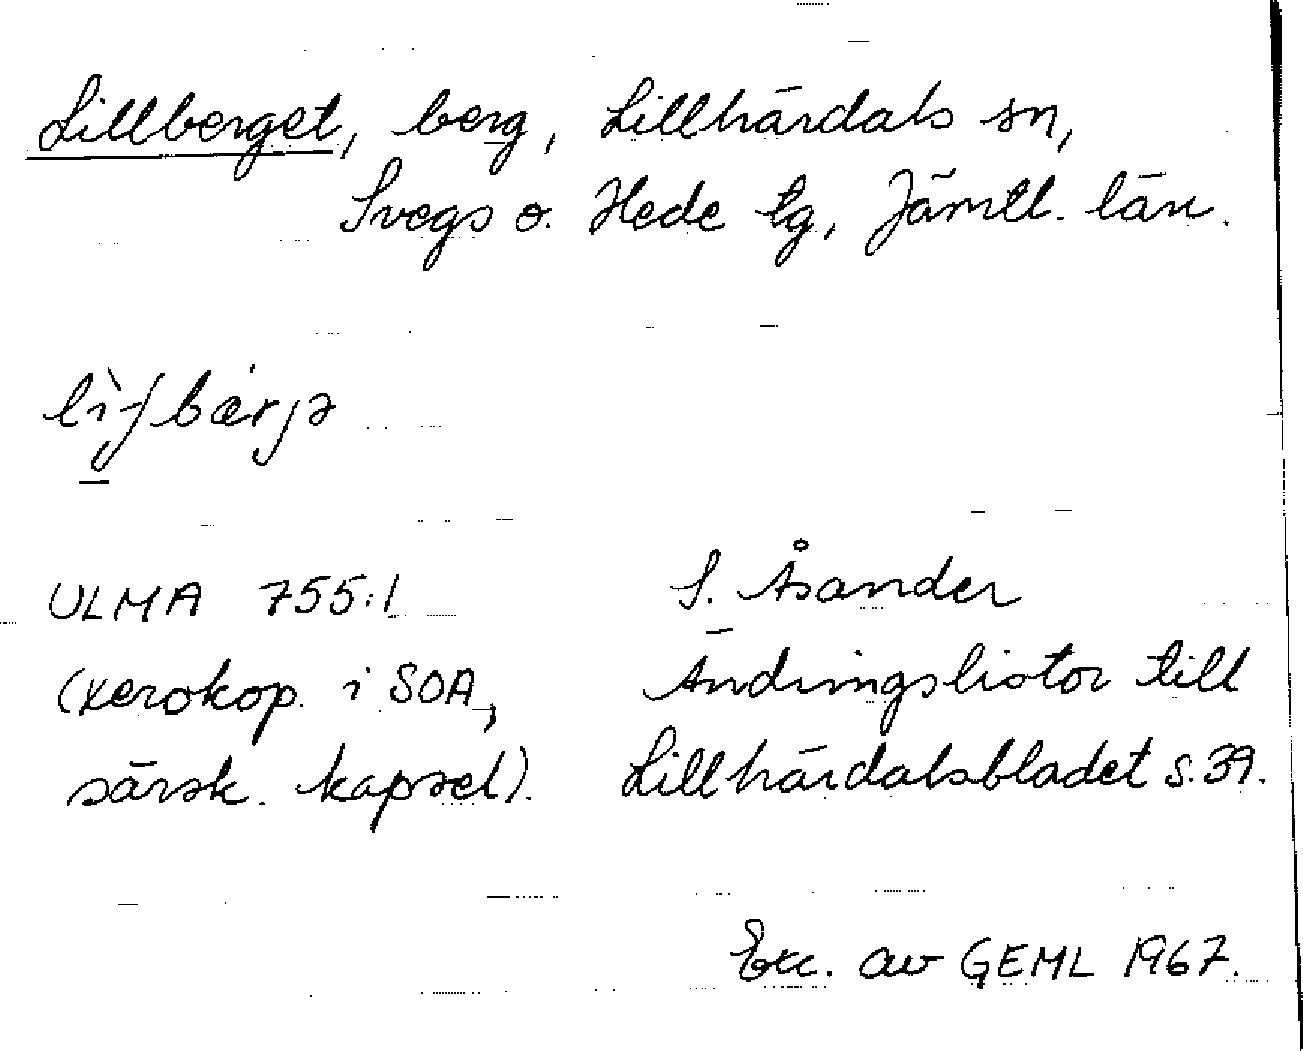 Lillberget, berg, Lillhärdals sn,
Svegs o. Hede tg, Jämtl. län.
ULMA 755:1
(xerokop. i SOA,
särsk. kapsel).
S. Åsander
Ändringslistor till
Lillhärdalsbladet s. 39.
Exc. av GEML 1967.